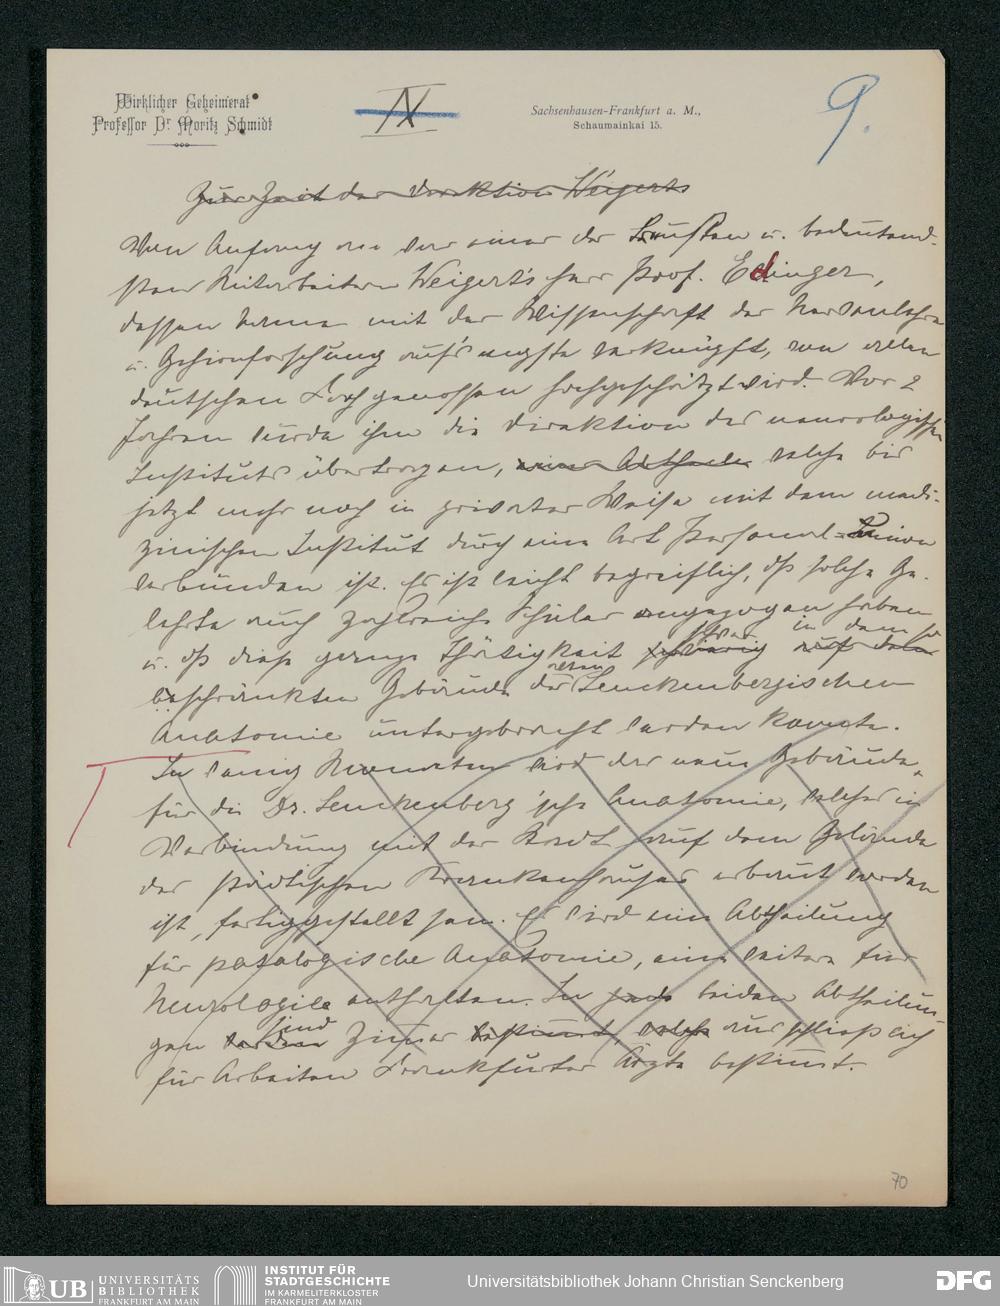 Wirklicher Geheimerat
Professor Dr Moritz Schmidt
IX
Sachsenhausen-Frankfurt a. M.,
Schaumainkai 15.
9.
Zur Zeit der Direktion Weigerts
Von Anfang an war einer der treusten u. bedeutend-
sten Mitarbeiter Weigert's Herr Prof. Edinger,
dessen Name mit der Wissenschaft der Nervenlehre
u. Gehirnforschung auf's engste verknüpft, von allen
deutschen Fachgenossen hochgeschätzt wird. Vor 2
Jahren wurde ihm die Direktion des neurologischen
Instituts übertragen, einer Abtheilu welche bis
jetzt mehr noch in privater Weise mit dem medi-
zinischen Institut durch eine Art Personal-Union
verbunden ist. Es ist leicht begreiflich, dß solche Ge-
lehrte auch zahlreiche Schüler angezogen haben
u. dß diese ganze Thätigkeit schwierig auf dem
schwer in dem so
beschränkten Gebäude der alten Senckenbergischen
Anatomie untergebracht werden konnte.
In wenig Monaten wird das neue Gebäude,
für die Dr. Senckenberg'sche Anatomie, welches in
Verbindung mit der Stadt auf dem Gelände
des städtischen Krankenhauses erbaut worden
ist, fertiggestellt sein. Es wird eine Abtheilung
für pathologische Anatomie, eine weitere für
Neurologie enthalten. In jede beiden Abtheilun-
gen werden sind Zimmer bestimmt, welche ausschließlich
für Arbeiten Frankfurter Ärzte bestimmt.
70
UB UNIVERSITÄTS
BIBLIOTHEK
FRANKFURT AM MAIN
INSTITUT FÜR
STADTGESCHICHTE
IM KARMELITERKLOSTER
FRANKFURT AM MAIN
Universitätsbibliothek Johann Christian Senckenberg
DFG